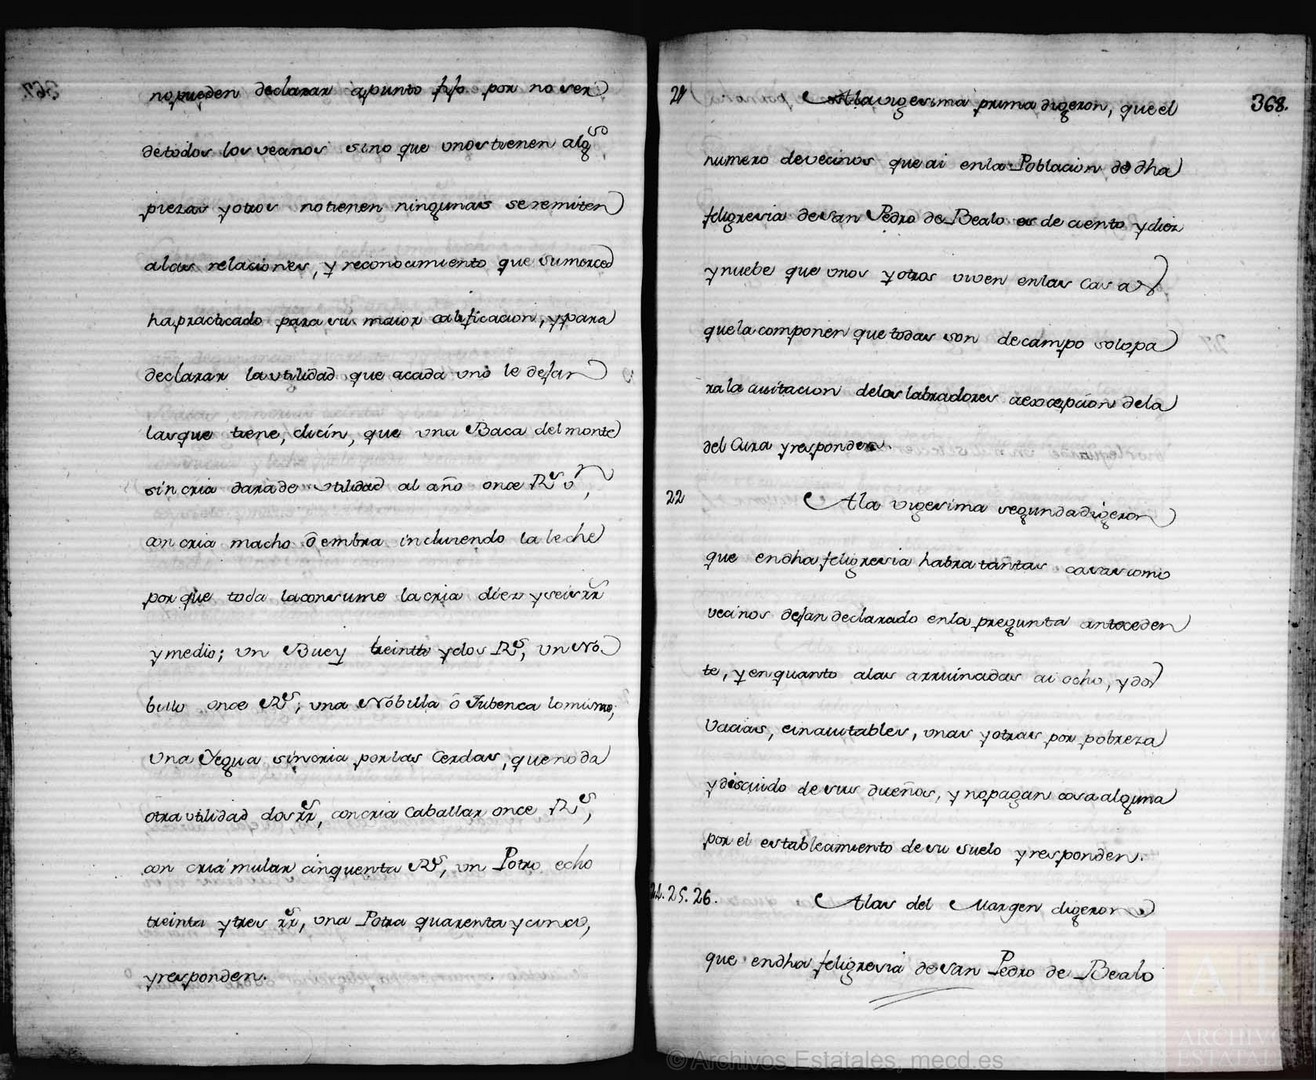 no pueden declarar apunto fijo por no ser
de todos los vecinos sino que unos tienen algs
piezas y otros no tienen ningunas se remiten
alas relaciones, y reconocimiento que su merced
ha practicado para su maior calificacion, y para
declarar la utilidad que acada uno le dejan
las que tiene, dicín, que una Baca del monte
sin cria dara de utilidad al año once Rs vn,
con cria macho ò embra incluiendo la leche
por que toda la consume la cria diez y seis rrs
y medio; un Buey treinta y dos Rs, un No-
billo once Rs; una Nobilla ò Jubenca lo mismo;
una Yegua sin cria por las Cerdas, que no da
otra utilidad dos rrs, con cria Caballar once Rs,
con cria mular cinquenta Rs, un Potro echo
treinta y tres rrs, una Potra quarenta y cinco,
y responden.
368.
21 Ala vigesima prima digeron, que el
numero de vecinos que ai en la Poblacion de dha
feligresia de San Pedro de Bealo es de ciento y diez
y nuebe que unos y otros viven en las Casas
que la componen que todas son de campo solo pa
ra la avitacion de los labradores aexcepcion de la
del Cura y responden.
22 Ala vigesima segunda digeron
que en dha feligresia habra tantas casas como
vecinos dejan declarado en la pregunta anteceden
te, y en quanto alas arruinadas ai ocho, y dos
Vacias, einavitables, unas y otras por pobreza
y descuido de sus dueños, y no pagan cosa alguna
por el establecimiento de su suelo y responden.
24. 25. 26. Alas del Margen digeron
que en dha feligresia de San Pedro de Bealo
© Archivos Estatales, mecd.es
ARCHIVOS
ESTATALES